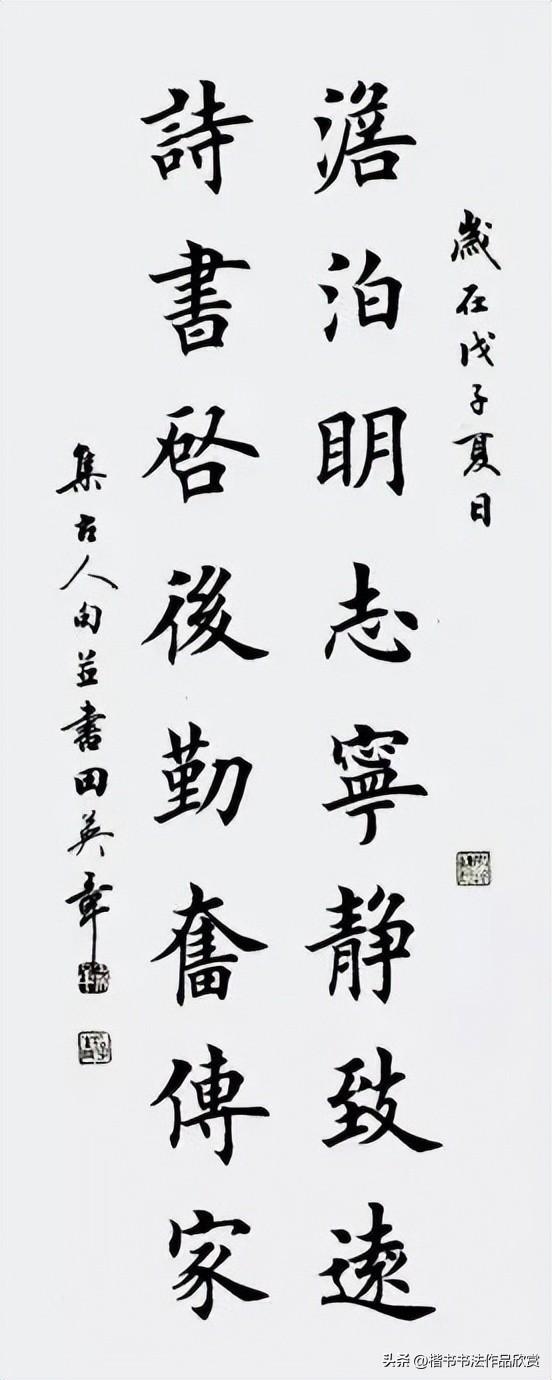 歲在戊子夏日
澹泊明志寧靜致遠
詩書啓後勤奮傳家
集古人句並書田英章
头条 @楷书书法作品欣赏